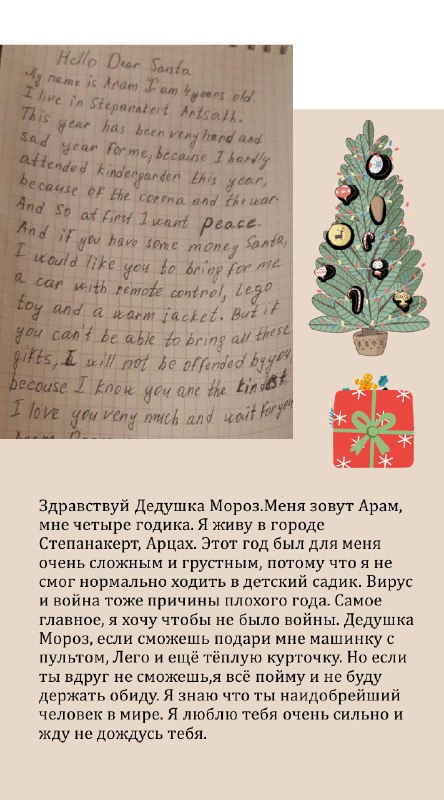 Hello Dear Santa
My name is Aram I am 4 years old.
I live in Stepanakert Artsath.
This year has been very hard and
sad year for me, because I hardly
attended kindergarden this year,
because of the corona and the war.
And so at first I want peace.
And if you have some money Santa,
I would like you to bring for me
a car with remote control, Lego
toy and a warm jacket. But if
you can't be able to bring all these
gifts, I will not be offended by you,
because I know you are the kindest.
I love you very much and wait for you
Здравствуй Дедушка Мороз.Меня зовут Арам,
мне четыре годика. Я живу в городе
Степанакерт, Арцах. Этот год был для меня
очень сложным и грустным, потому что я не
смог нормально ходить в детский садик. Вирус
и война тоже причины плохого года. Самое
главное, я хочу чтобы не было войны. Дедушка
Мороз, если сможешь подари мне машинку с
пультом, Лего и ещё тёплую курточку. Но если
ты вдруг не сможешь,я всё пойму и не буду
держать обиду. Я знаю что ты наидобрейший
человек в мире. Я люблю тебя очень сильно и
жду не дождусь тебя.